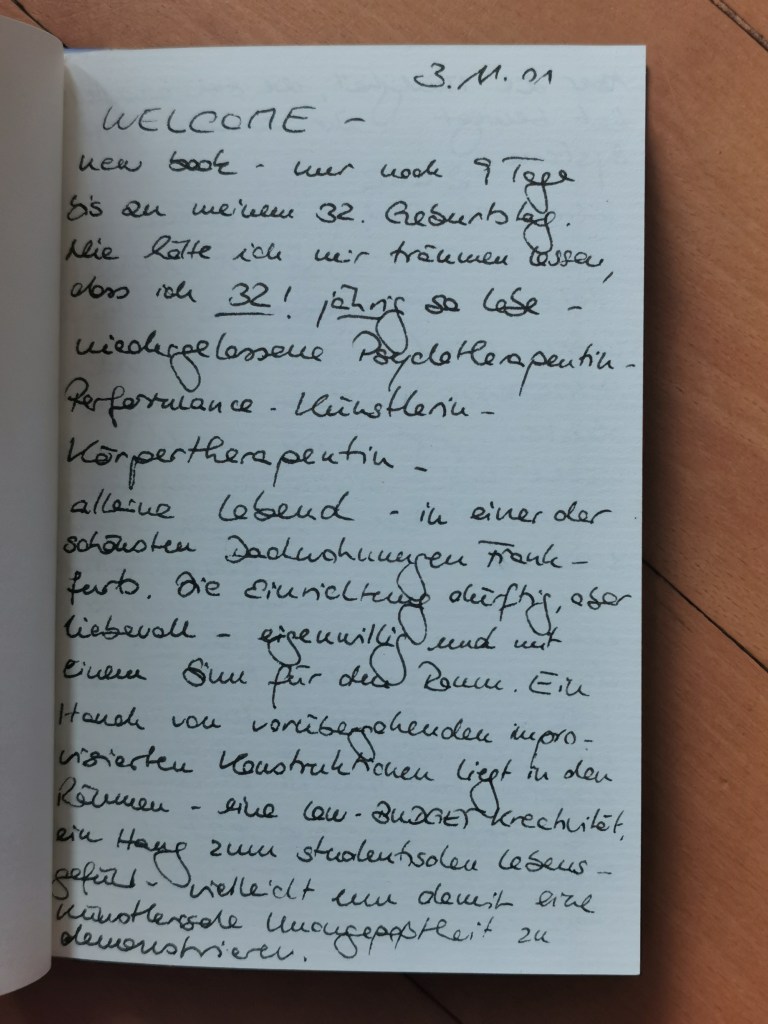 3.11.01
WELCOME –
new book - nur noch 9 Tage
bis zu meinem 32. Geburtstag.
Nie hätte ich mir träumen lassen,
dass ich 32! jährig so lebe –
niedergelassene Psychotherapeutin -
Performance - Künstlerin -
Körpertherapeutin -
alleine lebend - in einer der
schönsten Dachwohnungen Frank-
furts. Die Einrichtung dürftig, aber
liebevoll - eigenwillig und mit
einem Sinn für den Raum. Ein
Hauch von vorübergehenden impro-
visierten Konstruktionen liegt in den
Räumen - eine low-BUDGET Kreativität,
ein Hang zum studentischen Lebens-
gefühl - vielleicht um damit eine
künstlerische Unangepaßtheit zu
demonstrieren.